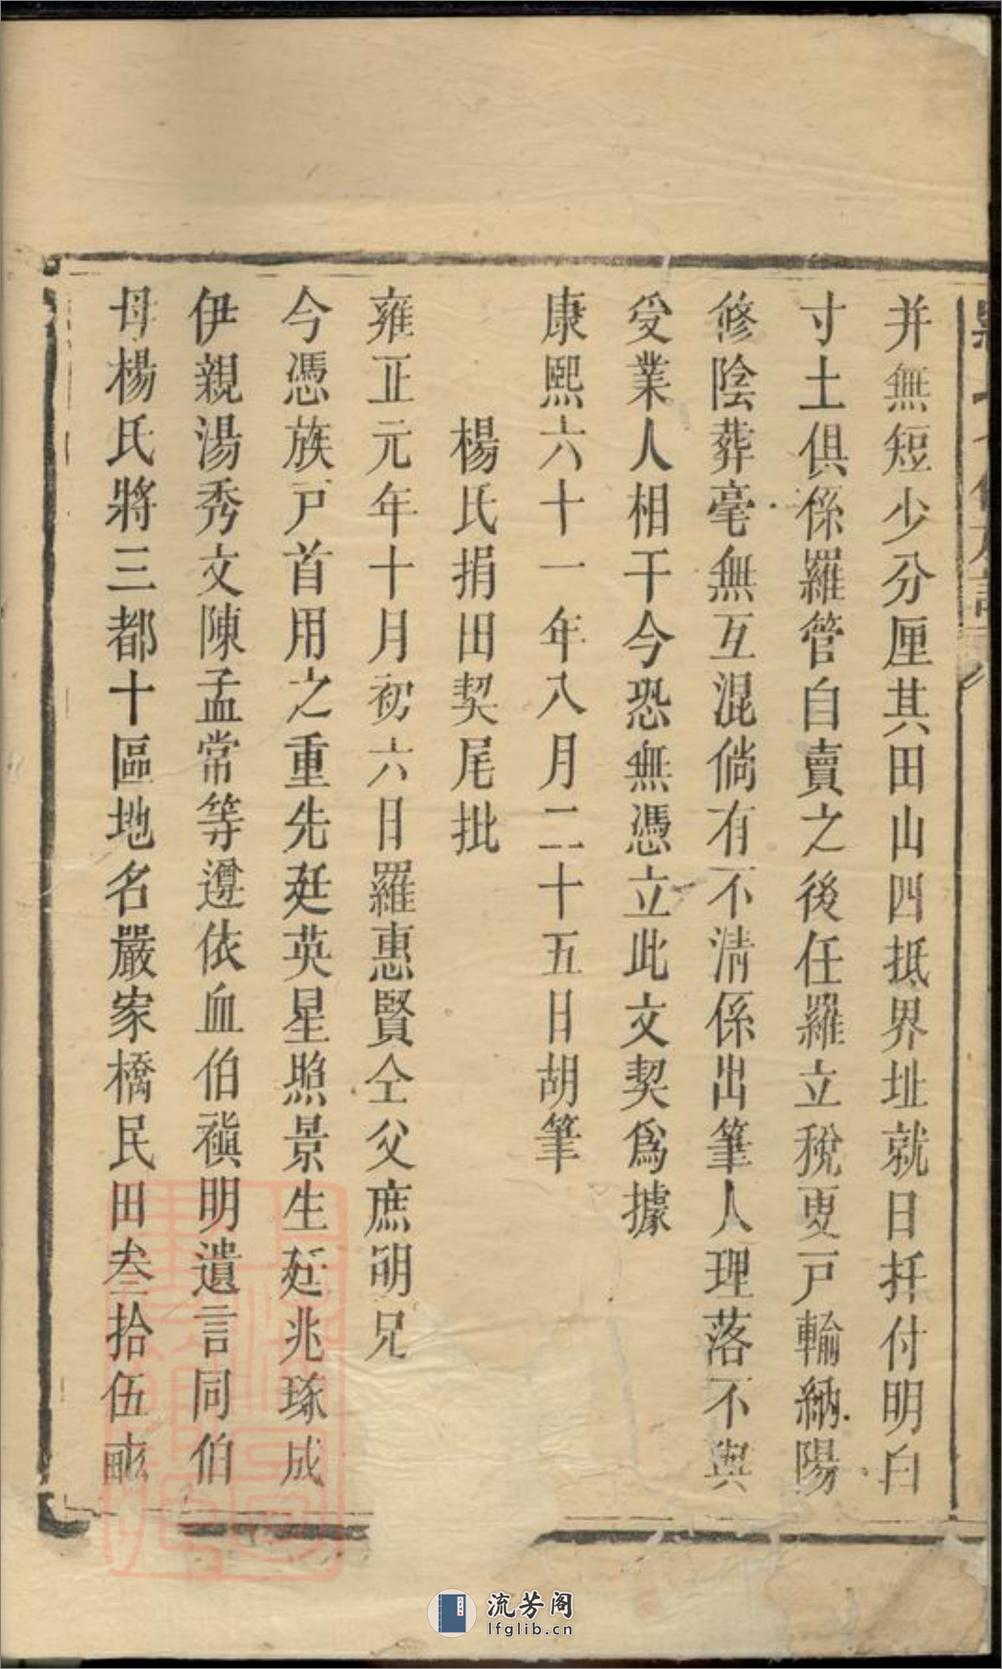 并無短少分厘其田山四抵界址就日扦付明白
寸土俱係羅管自賣之後任羅立稅更戸輸納陽
修陰葬毫無互混倘有不清係出筆人理落不與
受業人相干今恐無憑立此文契為據
康熙六十一年八月二十五日胡筆
楊氏捐田契尾批
雍正元年十月初六日羅惠賢仝父庶胡兄
今憑族戸首用之重先廷英星照景生廷兆琢成
伊親湯秀文陳孟常等遵依血伯禛明遺言同伯
母楊氏將三都十區地名嚴家橋民田叁拾伍畝
流芳阁
lfglib.cn